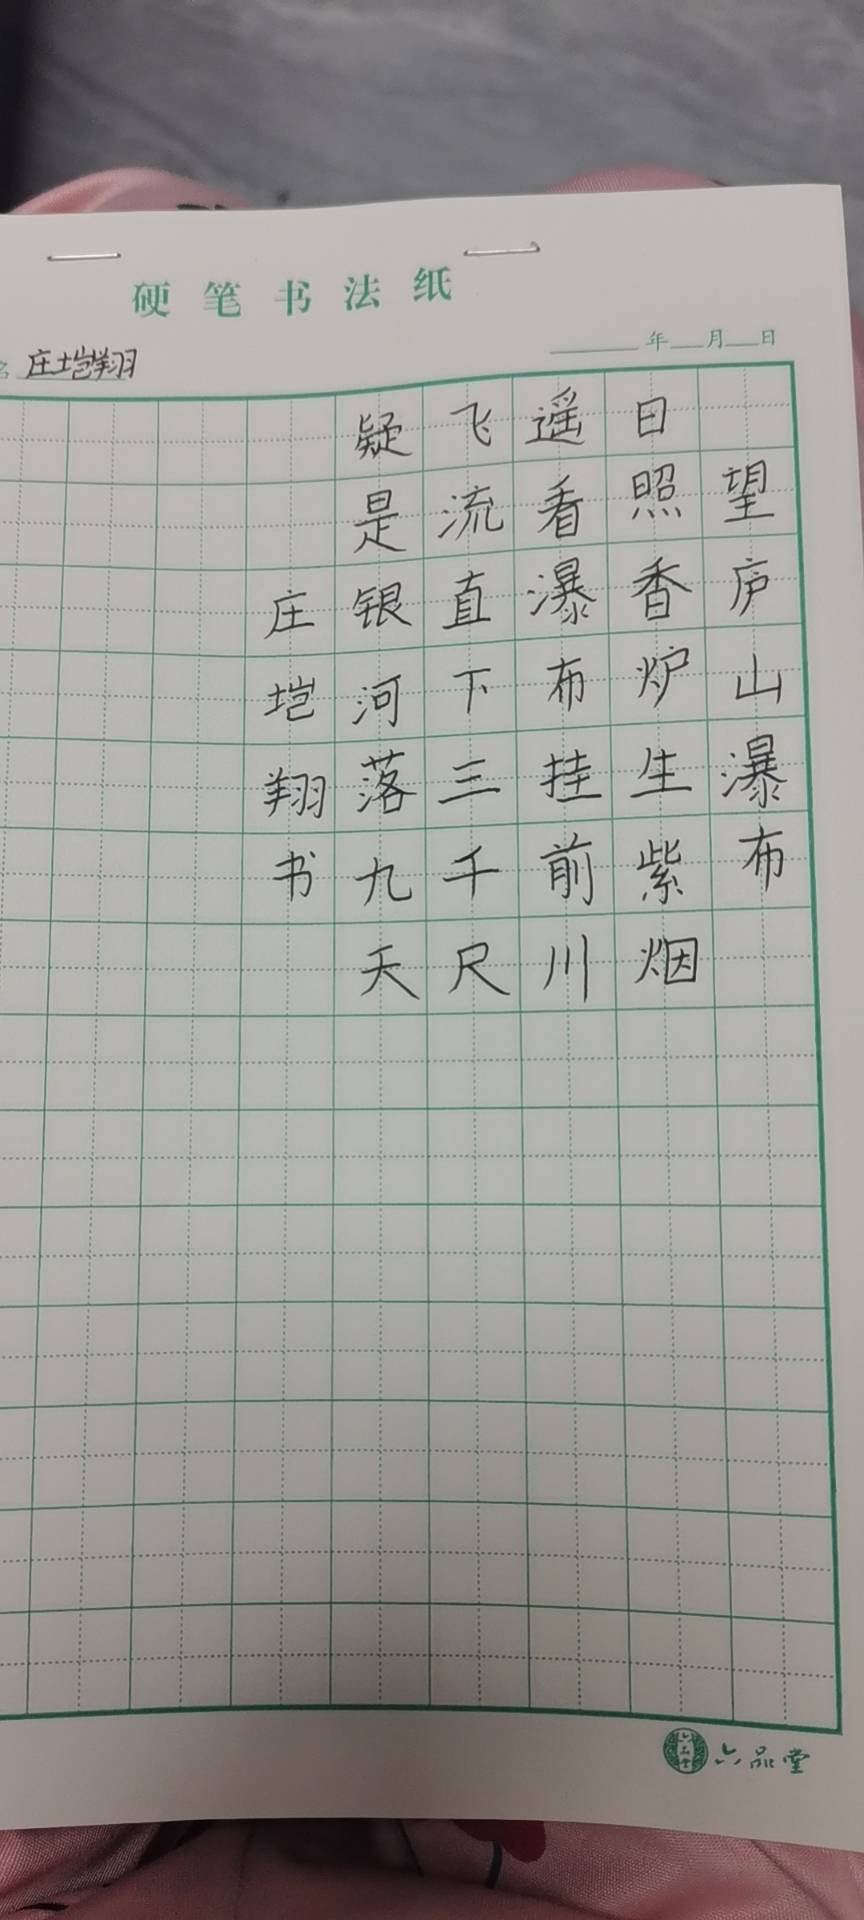 硬笔书法纸
名 庄垲翔
年 月 日
望庐山瀑布
日照香炉生紫烟
遥看瀑布挂前川
飞流直下三千尺
疑是银河落九天
庄垲翔书
六品堂
六品堂